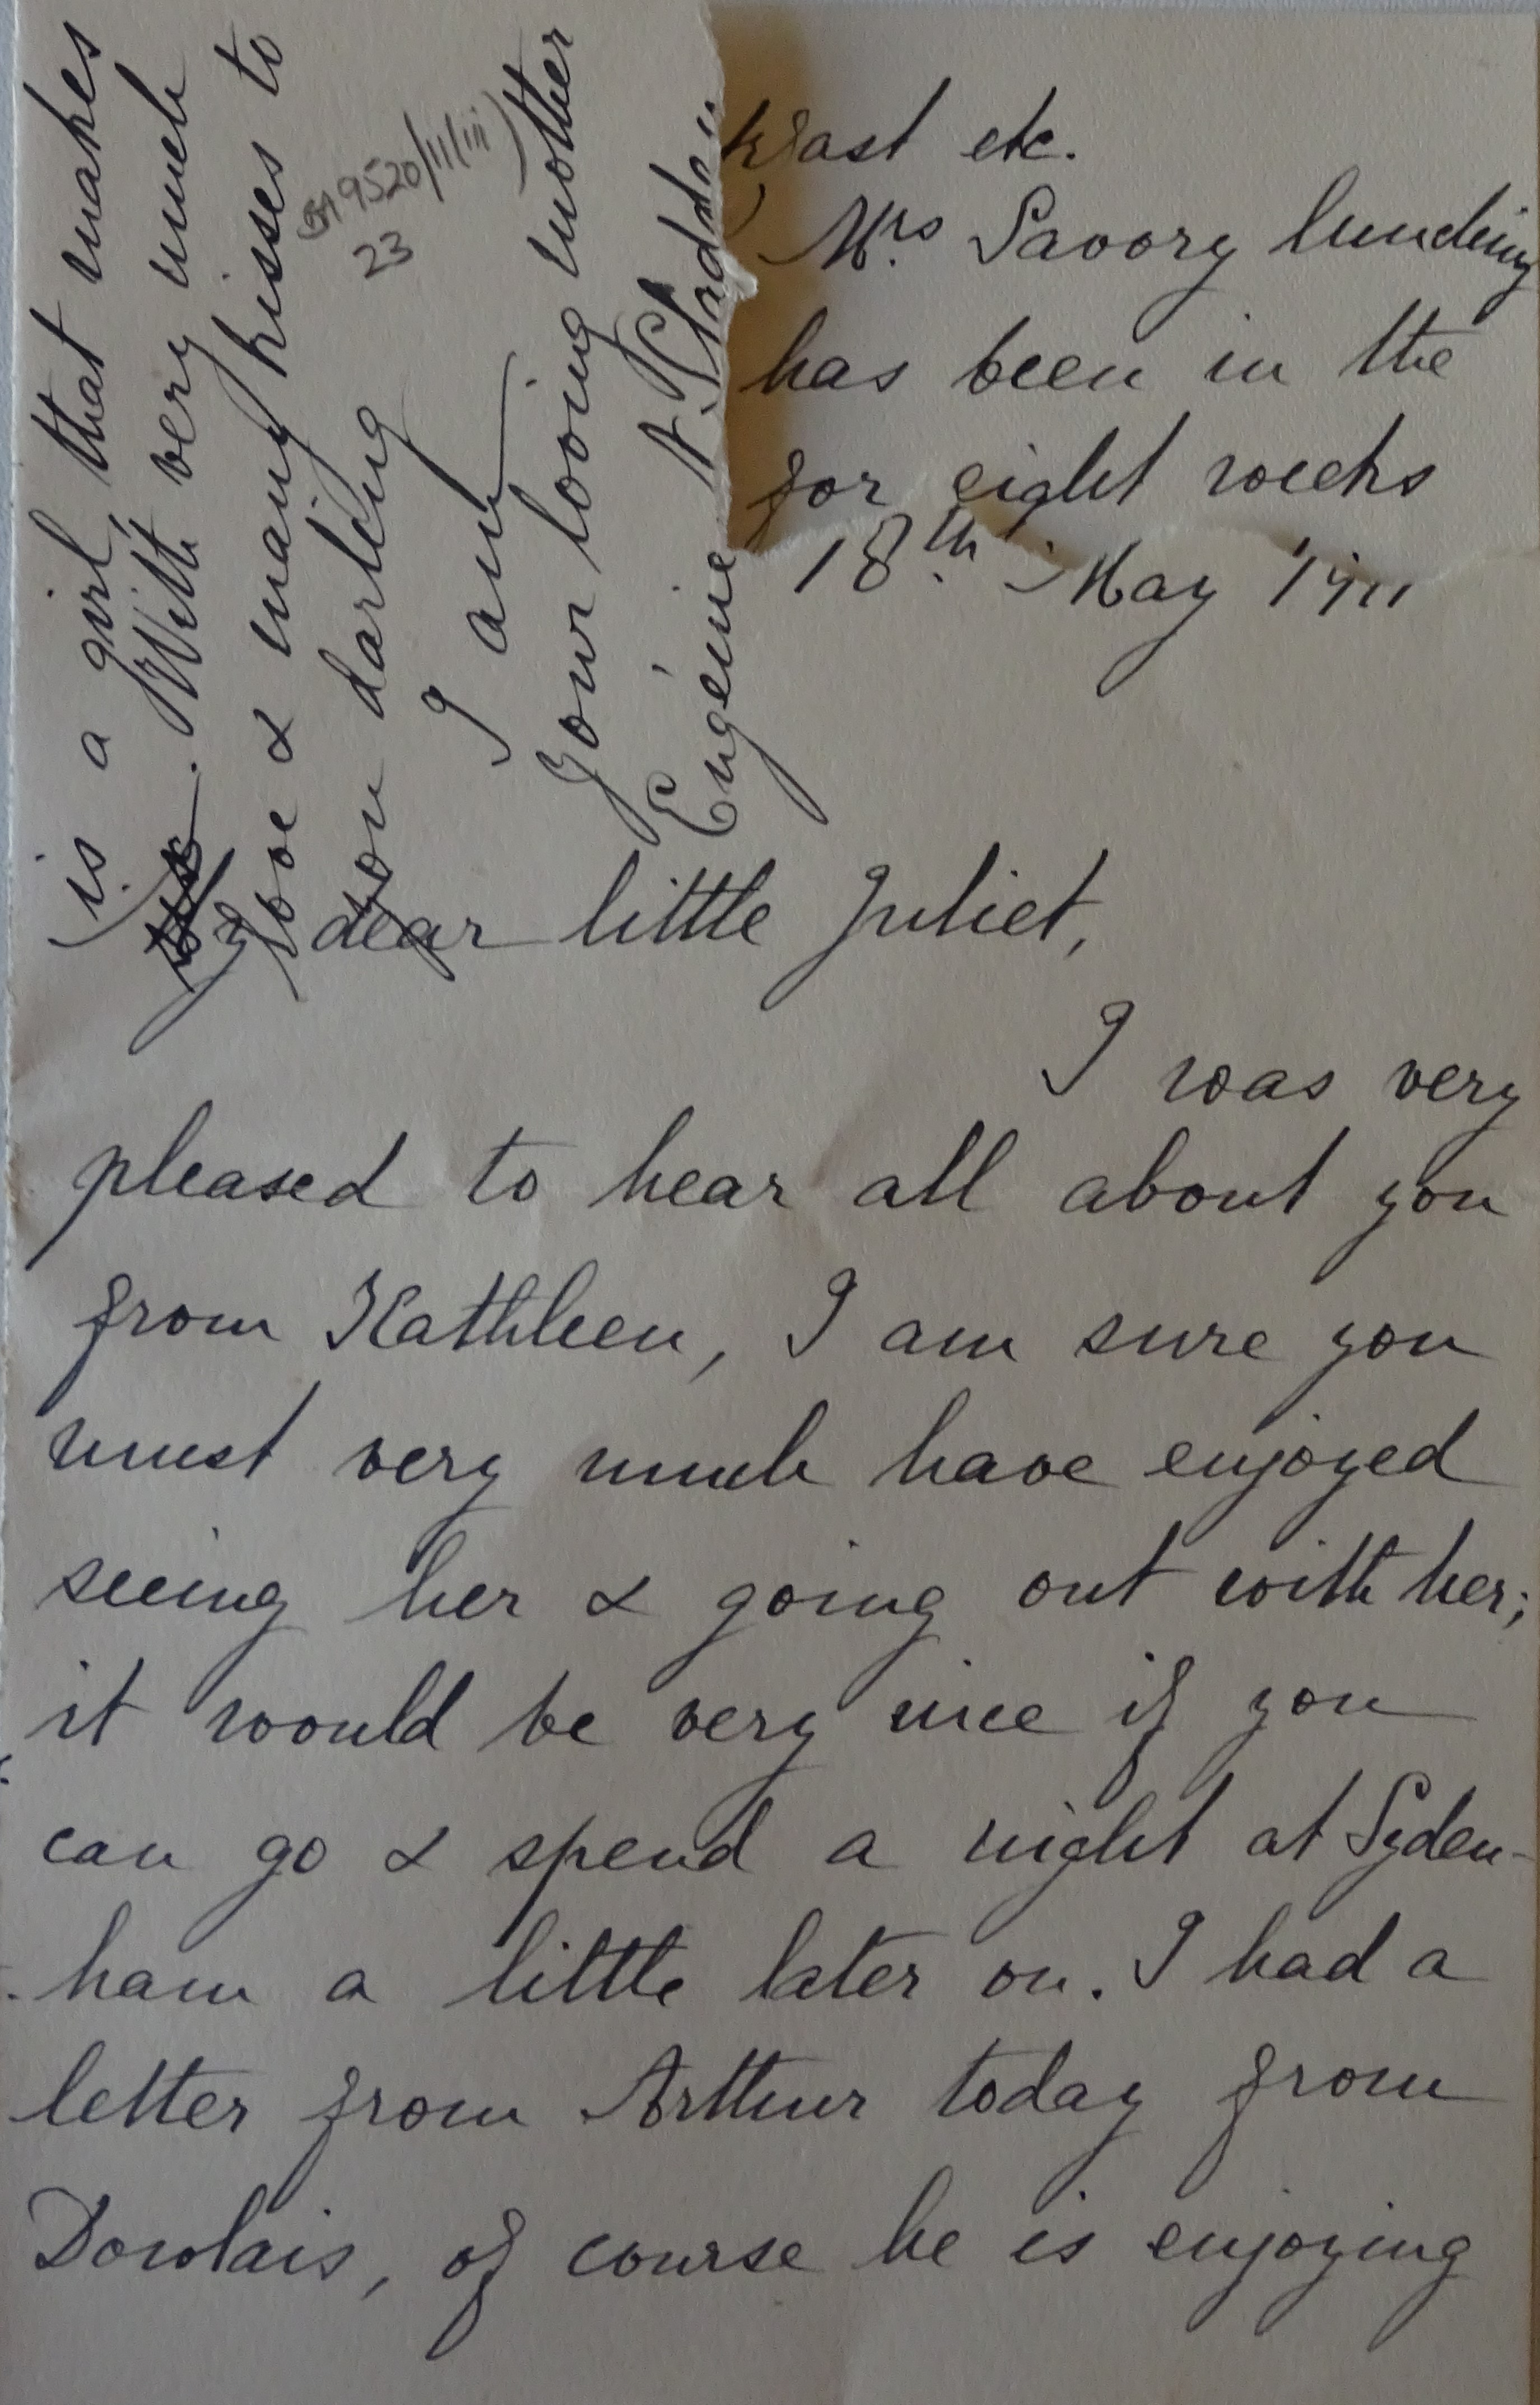 is a girl that makes
. With very much
love & many kisses to
you darling
I am
Your loving mother
Eugénie A.
BA 9520/11/iii)
23
etc.
Mrs Savory
has been in the
for eight weeks
18th May 1911
My dear little Juliet,
I was very
pleased to hear all about you
from Kathleen, I am sure you
must very much have enjoyed
seeing her & going out with her;
it would be very nice if you
can go & spend a night at Syden-
-ham a little later on. I had a
letter from Arthur today from
Dowlais, of course he is enjoying